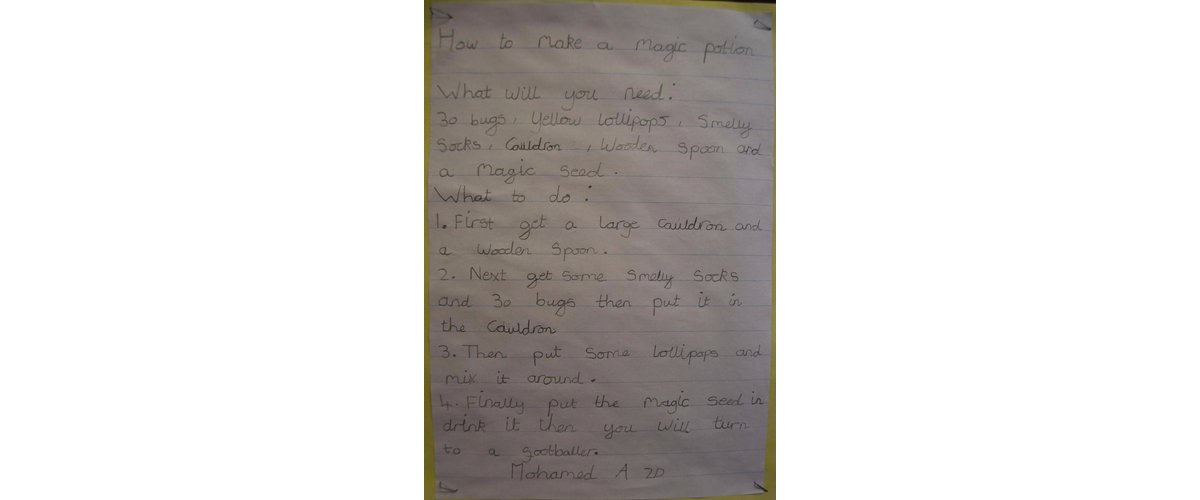 How to make a magic potion
What will you need:
30 bugs, Yellow lollipops, Smelly
Socks, Cauldron , Wooden Spoon and
a magic seed.
What to do:
1. First get a large cauldron and
a wooden spoon.
2. Next get some smelly socks
and 30 bugs then put it in
the cauldron
3. Then put some lollipops and
mix it around.
4. Finally put the magic seed in
drink it then you will turn
to a footballer.
Mohamed A 2D